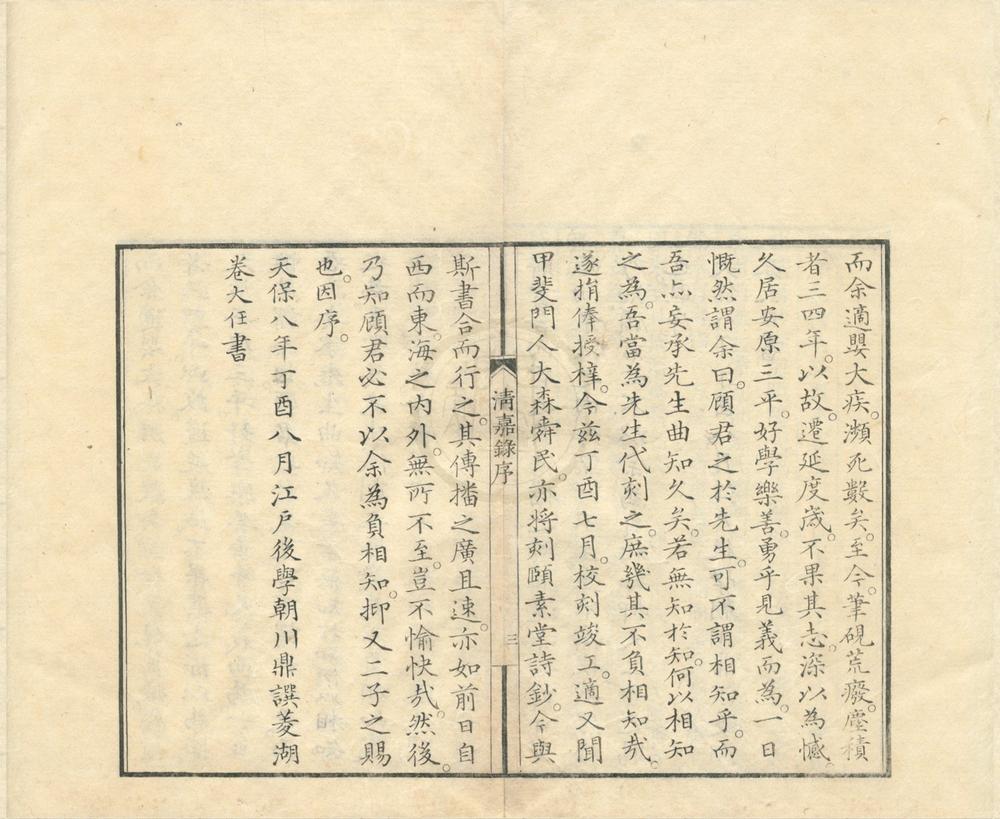 而余適嬰大疾。瀕死數矣。至今。筆硯荒廢。塵積
者三四年。以故。遷延度歲。不果其志。深以為憾。
久居安原三平。好學樂善。勇乎見義而為。一日
慨然謂余曰。顧君之於先生。可不謂相知乎。而
吾亦妄承先生曲知久矣。若無知於知。何以相知
之為。吾當為先生代刻之。庶幾其不負相知哉。
遂捐俸授梓。今玆丁酉七月。校刻竣工。適又聞
甲斐門人大森舜民。亦將刻頤素堂詩鈔。今與
清嘉錄序
三
斯書合而行之。其傳播之廣且速。亦如前日自
西而東。海之內外。無所不至。豈不愉快哉。然後。
乃知顧君必不以余為負相知。抑又二子之賜
也。因序。
天保八年丁酉八月江戶後學朝川鼎譔菱湖
卷大任書